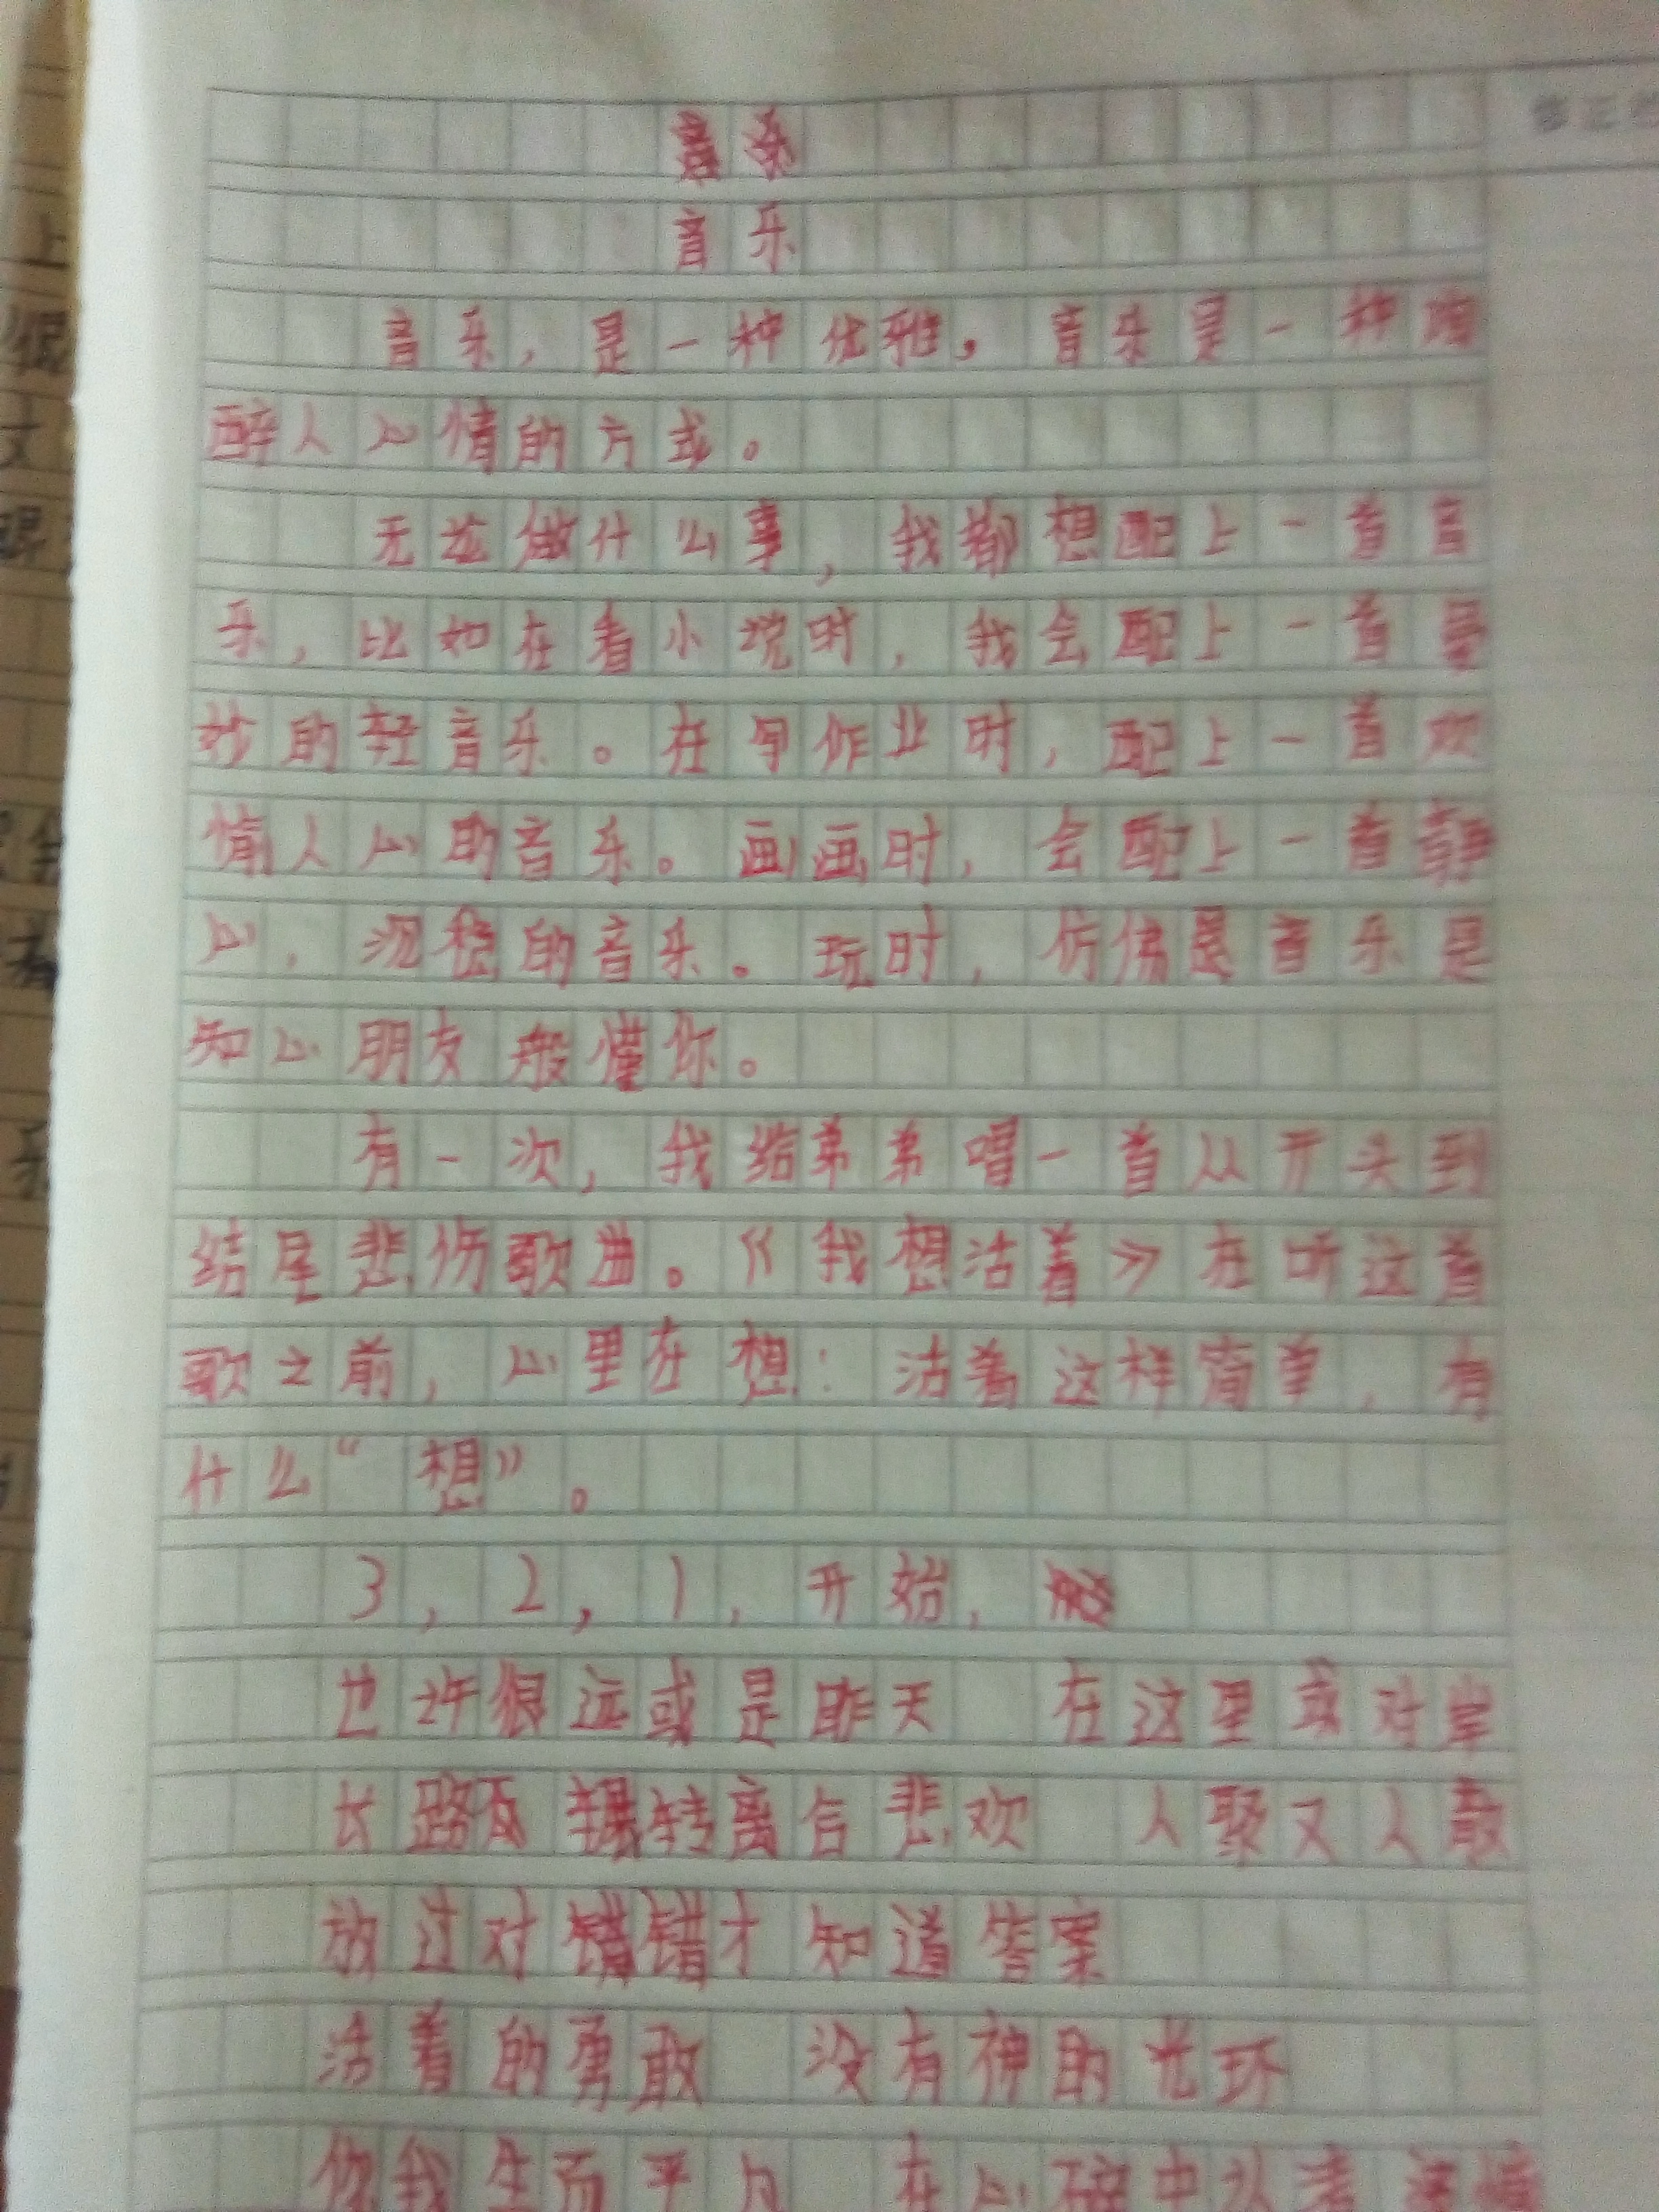 音乐
音乐，是一种优雅，音乐是一种陶
醉人心情的方式。
无论做什么事，我都想配上一首音
乐，比如在看小说时，我会配上一首曼
妙的轻音乐。在写作业时，配上一首欢
愉人心的音乐。画画时，会配上一首静
心，沉稳的音乐。玩时，仿佛是音乐是
知心朋友般懂你。
有一次，我给弟弟唱一首从开头到
结尾悲伤歌曲。《我想活着》在听这首
歌之前，心里在想：活着这样简单，有
什么“想”。
3，2，1，开始，
也许很远或是昨天 在这里或对岸
长路辗转离合悲欢 人聚又人散
放过对错才知道答案
活着的勇敢 没有神的光环
你我生而平凡 在心碎中认清遗憾